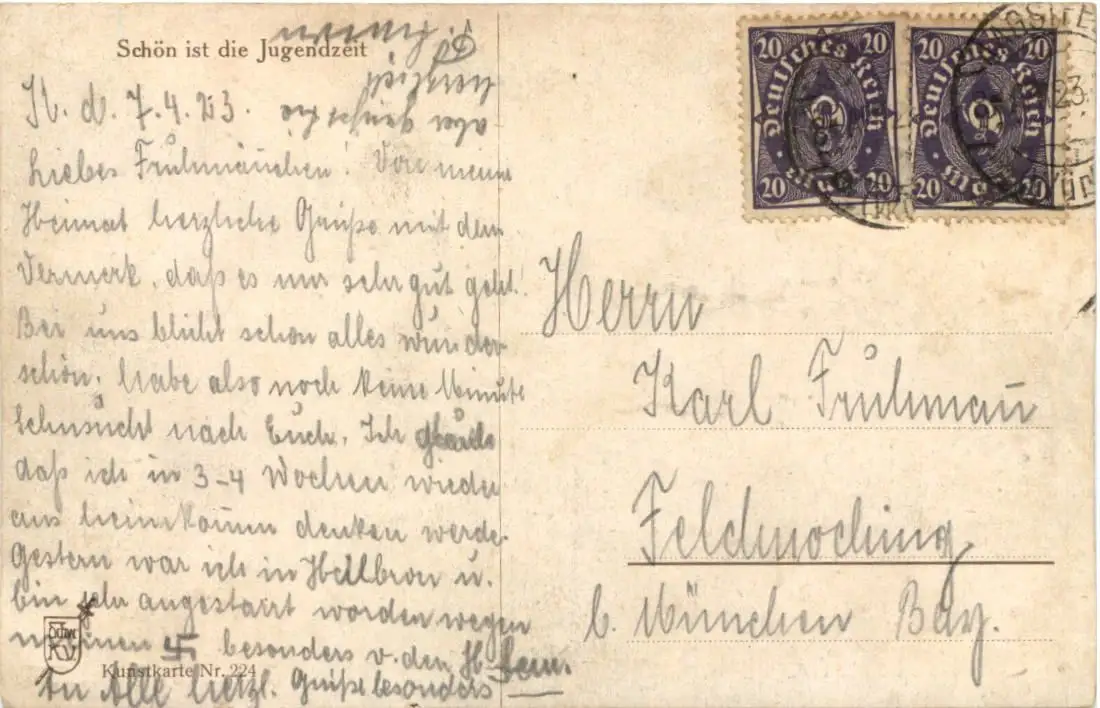 Schön ist die Jugendzeit
K. d. 7.4.23.
aber grüßt
herzlich
Liebes Frühmäuchen! Von meiner
Heimat herzliche Grüße mit dem
Vermerk, daß es mir sehr gut geht!
Bei uns blüht schon alles wunder
schön, habe also noch keine Minute
Sehnsucht nach Euch. Ich glaube
daß ich in 3-4 Wochen wieder
ans heimkommen denken werde.
Gestern war ich in Heilbron u.
bin sehr angestarrt worden wegen
meinen 卐 besonders v. den
An Alle herzl. Grüße besonders
Kunstkarte Nr. 224
20 20
Deutsches Reich
20 Mark 20
20 20
Deutsches Reich
20 Mark 20
Herrn
Karl Fruhmau
Feldmoching
b. München Bay.